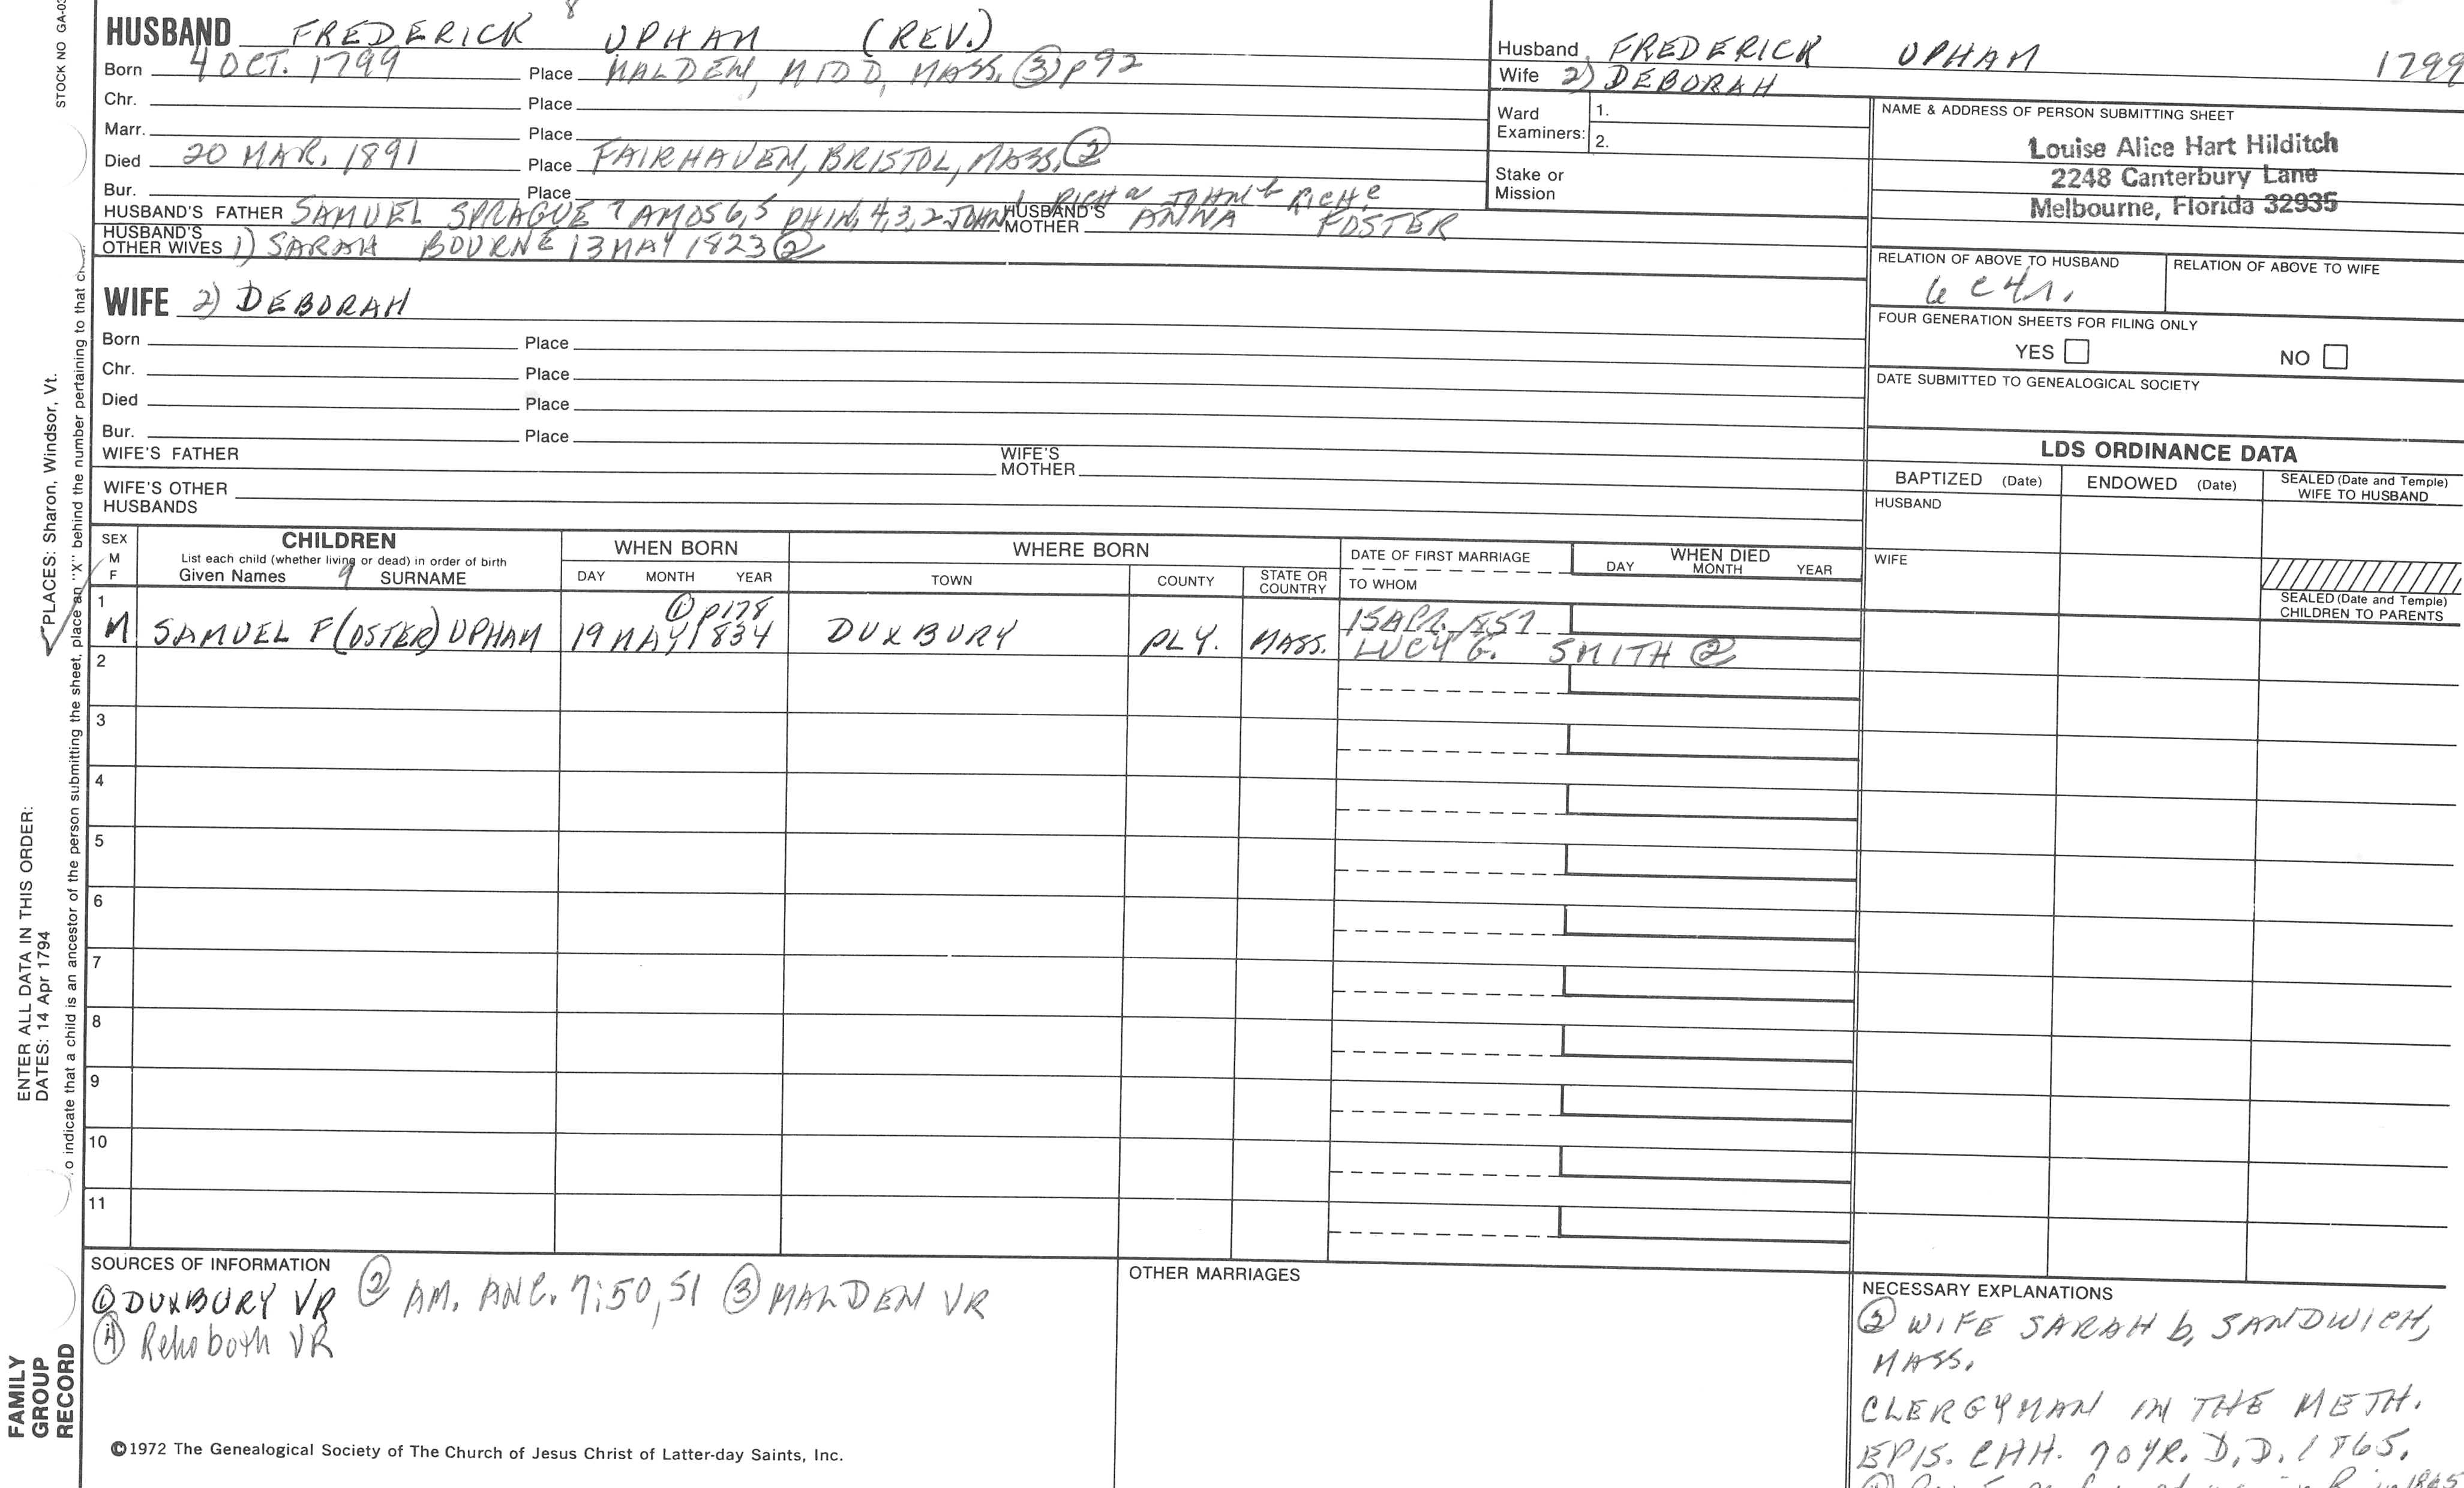 STOCK NO GA-03
8
HUSBAND FREDERICK UPHAM (REV.)
Born 4 OCT. 1799 Place MALDEN, MIDD, MASS. ③ p92
Chr. Place
Marr. Place
Died 20 MAR. 1891 Place FAIRHAVEN, BRISTOL, MASS. ②
Bur. Place
RICH a JOHN b RICH c
HUSBAND'S FATHER SAMUEL SPRAGUE 7 AMOS 6,5 PHIN. 4,3,2 JOHN 1 HUSBAND'S MOTHER ANNA FOSTER
HUSBAND'S OTHER WIVES 1) SARAH BOURNE 13 MAY 1823 ②
WIFE 2) DEBORAH
Born Place
Chr. Place
Died Place
Bur. Place
WIFE'S FATHER WIFE'S MOTHER
WIFE'S OTHER HUSBANDS
Husband FREDERICK UPHAM 1799
Wife 2) DEBORAH
Ward Examiners: 1.
2.
Stake or Mission
NAME & ADDRESS OF PERSON SUBMITTING SHEET
Louise Alice Hart Hilditch
2248 Canterbury Lane
Melbourne, Florida 32935
RELATION OF ABOVE TO HUSBAND RELATION OF ABOVE TO WIFE
6 c 4 r.
FOUR GENERATION SHEETS FOR FILING ONLY
YES NO
DATE SUBMITTED TO GENEALOGICAL SOCIETY
LDS ORDINANCE DATA
BAPTIZED (Date) ENDOWED (Date) SEALED (Date and Temple) WIFE TO HUSBAND
HUSBAND
WIFE
SEALED (Date and Temple) CHILDREN TO PARENTS
SEX M F
CHILDREN
List each child (whether living or dead) in order of birth
Given Names 9 SURNAME
WHEN BORN
DAY MONTH YEAR
WHERE BORN
TOWN COUNTY STATE OR COUNTRY
DATE OF FIRST MARRIAGE
TO WHOM
WHEN DIED
DAY MONTH YEAR
① p178
1 M SAMUEL F(OSTER) UPHAM 19 MAY 1834 DUXBURY PLY. MASS. 15 APR. 1857
LUCY G. SMITH ②
2
3
4
5
6
7
8
9
10
11
SOURCES OF INFORMATION
① DUXBURY VR ② AM. ANC. 7:50,51 ③ MALDEN VR
④ Rehoboth VR
OTHER MARRIAGES
NECESSARY EXPLANATIONS
② WIFE SARAH b, SANDWICH,
MASS.
CLERGYMAN IN THE METH.
EPIS. CHH. 70 YR. D.D. 1865.
©1972 The Genealogical Society of The Church of Jesus Christ of Latter-day Saints, Inc.
FAMILY GROUP RECORD
ENTER ALL DATA IN THIS ORDER:
DATES: 14 Apr 1794
PLACES: Sharon, Windsor, Vt.
o indicate that a child is an ancestor of the person submitting the sheet, place an "X" behind the number pertaining to that ch